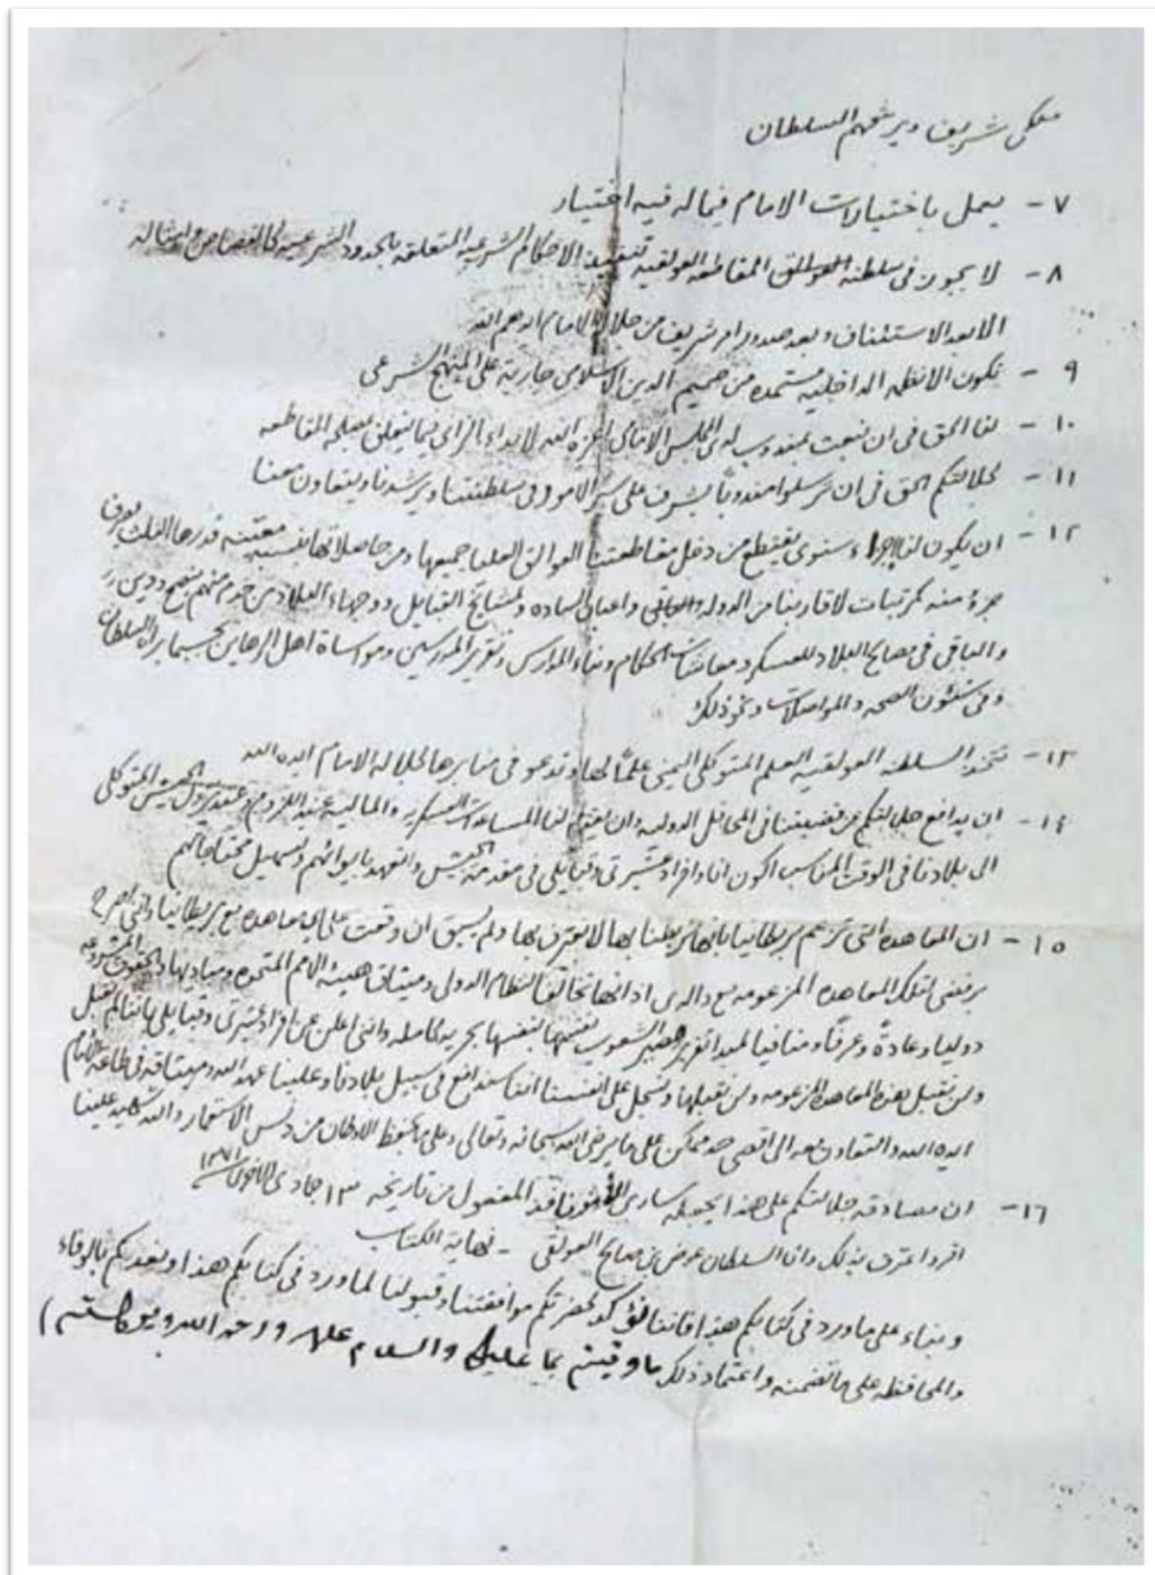 ملكي شريف ويرشحهم السلطان
٧- يعمل باختيارات الامام فيما له فيه اختيار
٨- لا يجوز في سلطنة العوالق المقاطعه العولقيه تنفيذ الاحكام الشرعيه المتعلقه بالحدود الشرعية كالقصاص وامثاله
الا بعد الاستئناف وبعد صدور امر شريف من جلالة الامام ايدهم الله
٩- تكون الانظمه الداخليه مستمده من صميم الدين الاسلامي جارية على المنهج الشرعي
١٠- لنا الحق في ان نبعث بمندوب لدى المجلس الامامي اعزه الله لابداء الرأي فيما يتعلق بمصلحة المقاطعه
١١- لجلالتكم الحق في ان ترسلوا مندوباً يشرف على سير الامور في سلطنتنا ويرشدنا ويتعاون معنا
١٢- ان يكون لنا اجراء سنوي يقتطع من دخل مقاطعتنا العوالق العليا جميعها ومن حاصلاتها بنسبة معينه قدرها الثلث يصرف
جزء منه كمرتبات لاقاربنا من الدوله واعيان الساده ومشايخ القبايل ووجهاء البلاد من خدم منهم بنصح ودين
والباقي في مصالح البلاد للعسكر ومعاشات الحكام وبناء المدارس وتقرير المدرسين ومواساة اهل الرهاين حسبما يراه السلطان
وفي شئون الصحه والمواصلات ونحو ذلك
١٣- تتخذ السلطنه العولقيه العلم المتوكلي اليمني علماً لها وتدعو في منابرها لجلالة الامام ايده الله
١٤- ان يدافع جلالتكم عن قضيتنا في المحافل الدوليه وان تقدم لنا المساعدات العسكريه والماليه عند اللزوم وعند نزول الجيش المتوكلي
الى بلادنا في الوقت المناسب اكون انا وافراد عشيرتي وقبايلي في مقدمة الجيش والتعهد بايوائهم وتسهيل محتاجاتهم
١٥- ان المعاهده التي تزعم بريطانيا بانها تربطنا بها لا نعترف بها ولم يسبق ان وقعت على اي معاهده مع بريطانيا وانني اصرح
برفضي لتلك المعاهده المزعومه مع والدي اذ انها تخالف النظام الدولي وميثاق هيئة الامم المتحده ومبادئها والحقوق المشروعه
دوليا وعادةً وعرفاً ومنافيا لمبدا تقرير مصير الشعوب نفسها بنفسها بحريه كامله وانني اعلن عن افراد عشيرتي وقبايلي باننا لم نقبل
ولن نقبل بهذه المعاهده المزعومه ولن نقبلها ونسجل على انفسنا اننا سندافع في سبيل بلادنا وعلينا عهد الله وميثاقه في طاعة الامام
ايده الله والتعاون معه الى اقصى حد ممكن على ما يرضي الله سبحانه وتعالى وعلى ما يحفظ الاوطان من دنس الاستعمار والله شهيد علينا
١٦- ان مصادقة جلالتكم على هذا يجعله ساري نافذ المفعول من تاريخه ١٣ جمادى الاخرى ١٣٧١
اقر واعترف بذلك وانا السلطان عوض بن صالح العولقي - نهاية الكتاب
وبناء على ما ورد في كتابكم هذا فاننا نؤكد لحضرتكم موافقتنا وقبولنا لما ورد في كتابكم هذا ونعدكم بالوفاء
والمحافظه على ما تضمنه واعتماد ذلك ما وفيتم بما عليكم والسلام عليكم ورحمة الله وبركاته)